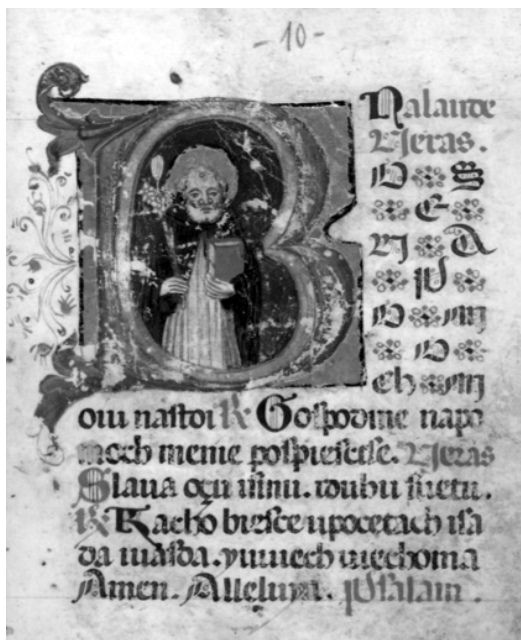 - 10 -
Nalaude
Vieras.
B
O S
E
O
O
Ch
oiu nastoi R Gospodine napo
moch meme pospiescise. Vieras
Slaua oçu isinu. iduhu suetu.
R Kacho biesce upocetach isa
da iuasda. yuuiech uiechoma
Amen. Alleluya. Psalam.